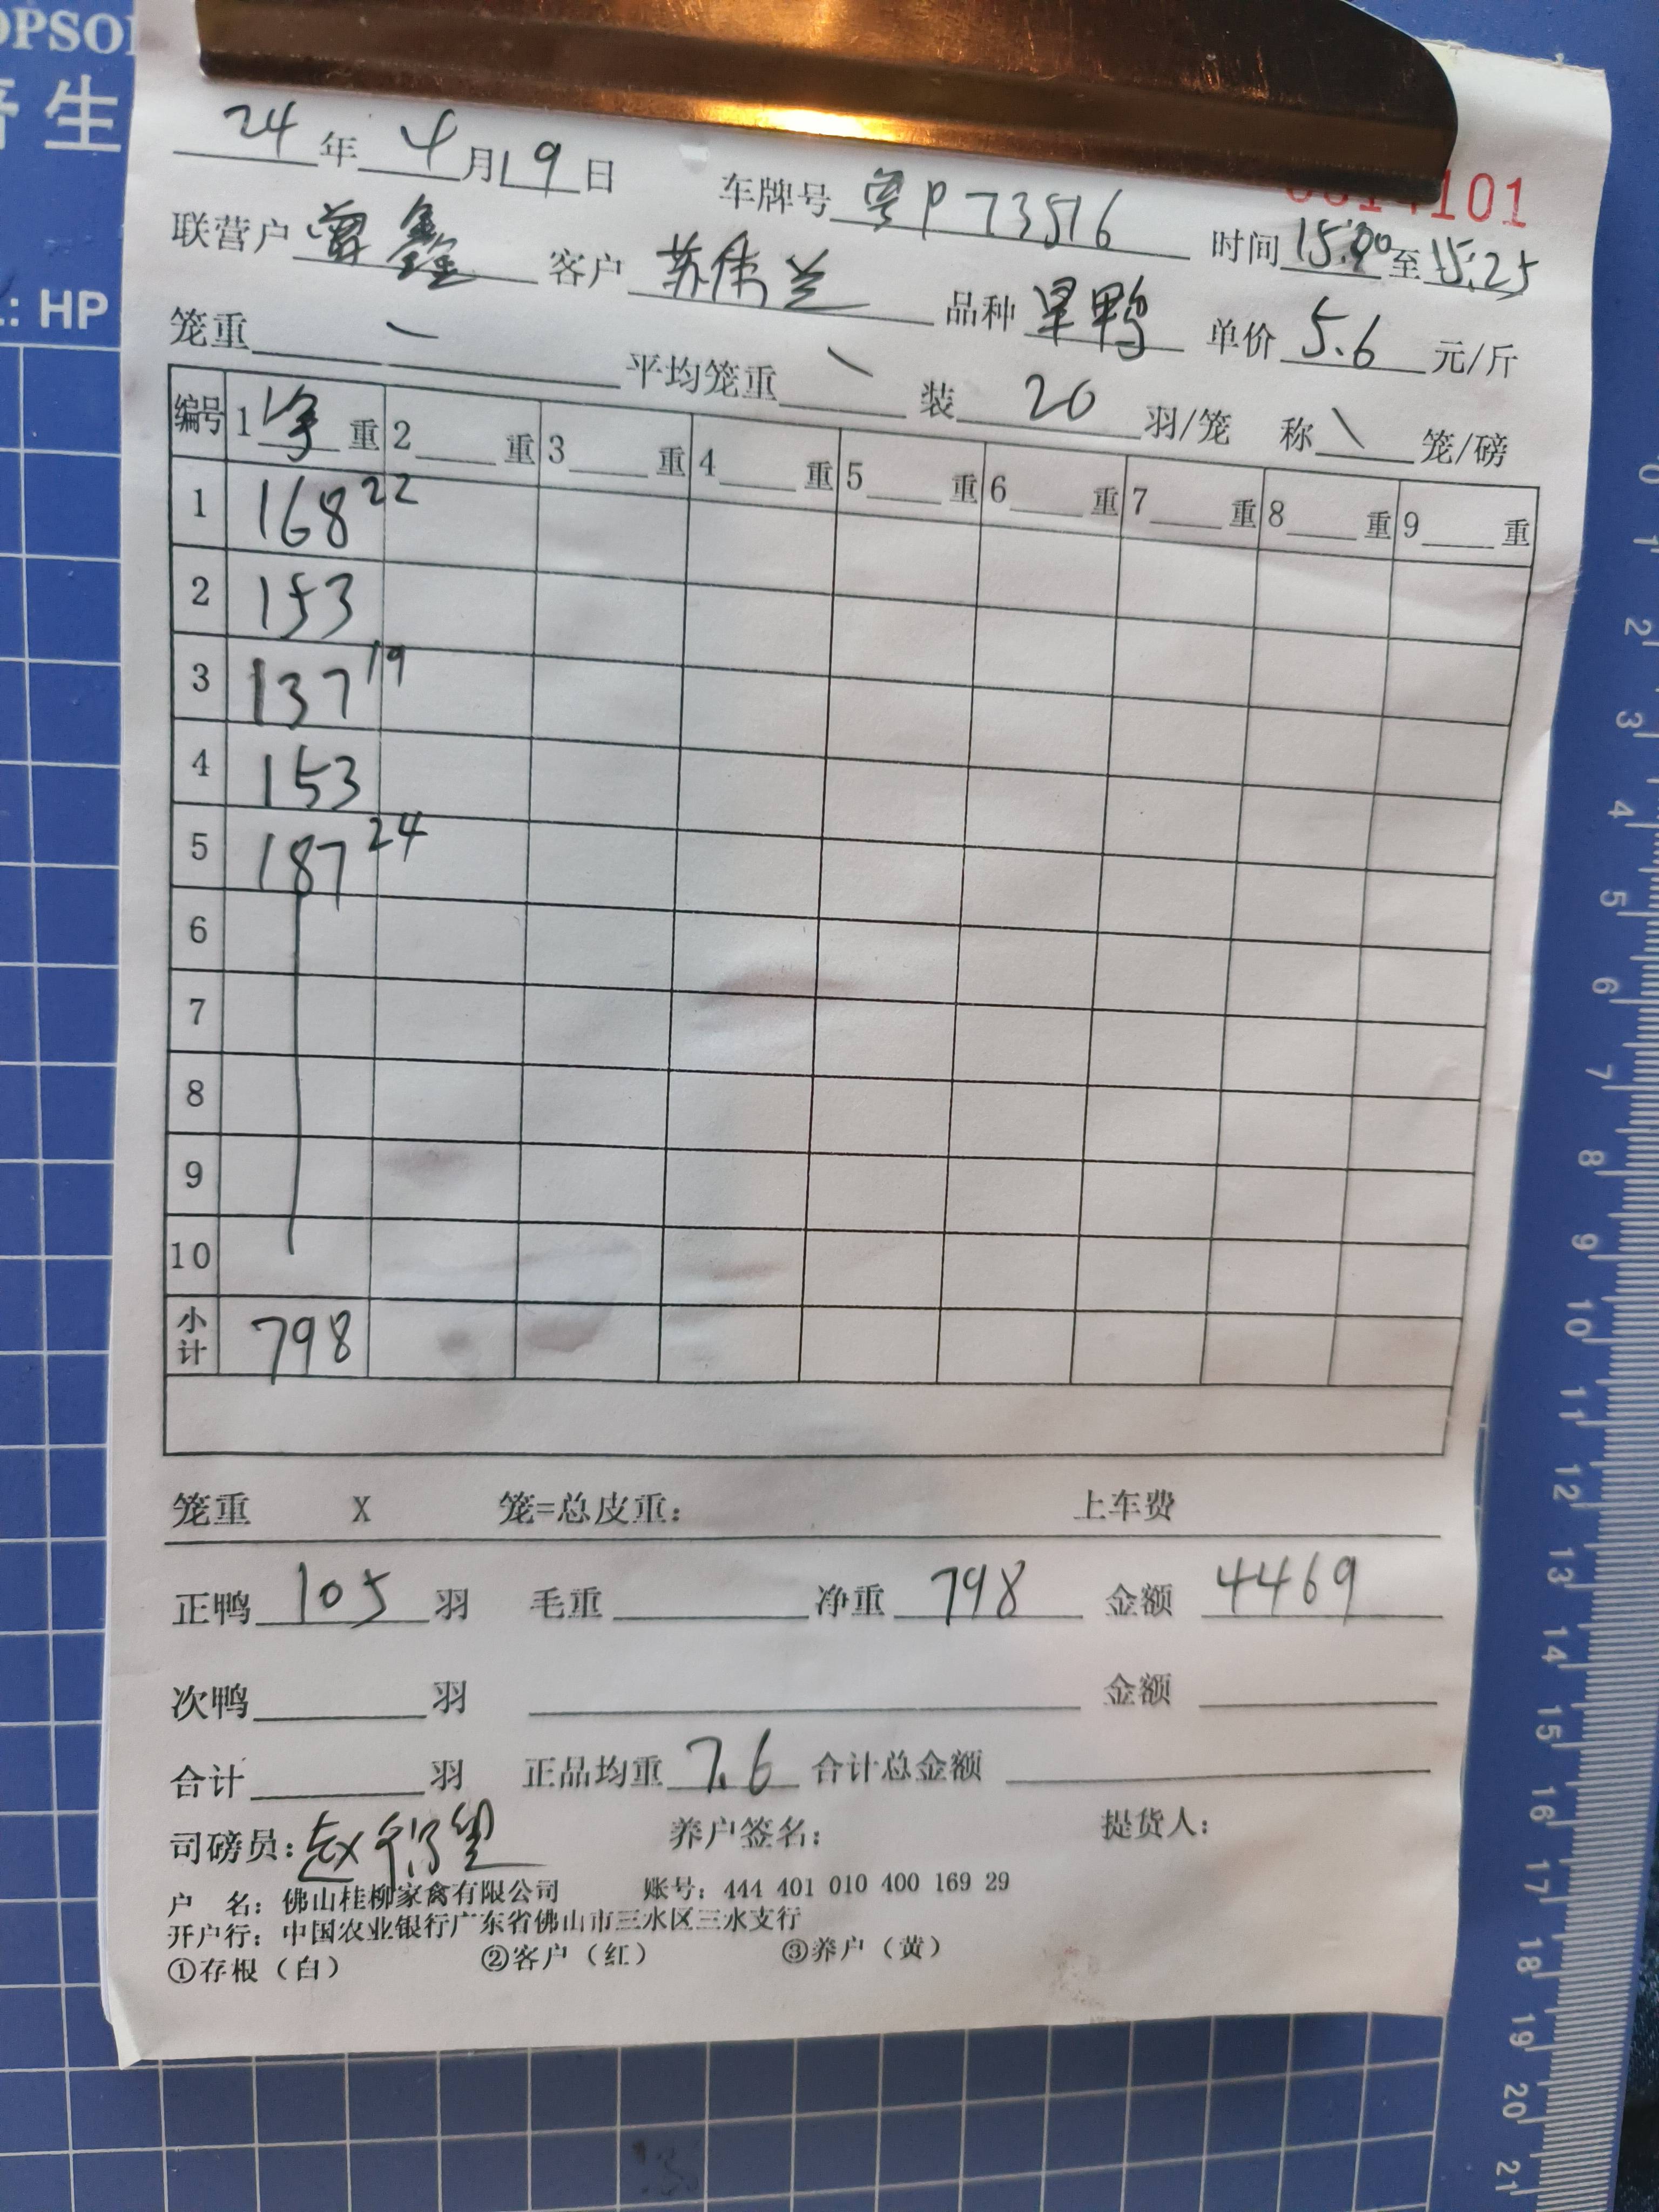 普生
: HP
101
24年4月19日 车牌号 粤P73516 时间 15:00至15:25
联营户 曾鑫 客户 苏伟兰 品种 旱鸭 单价 5.6 元/斤
笼重 一 平均笼重 \ 装 20 羽/笼 称 \ 笼/磅
编号 1 净 重 2 重 3 重 4 重 5 重 6 重 7 重 8 重 9 重
1 168 22
2 153
3 137 19
4 153
5 187 24
6
7
8
9
10
小计 798
笼重 X 笼=总皮重: 上车费
正鸭 105 羽 毛重 净重 798 金额 4469
次鸭 羽 金额
合计 羽 正品均重 7.6 合计总金额
司磅员: 赵 养户签名: 提货人:
户 名: 佛山桂柳家禽有限公司 账号: 444 401 010 400 169 29
开户行: 中国农业银行广东省佛山市三水区三水支行
①存根(白) ②客户(红) ③养户(黄)
0
1
2
3
4
5
6
7
8
9
10
11
12
13
14
15
16
17
18
19
20
21